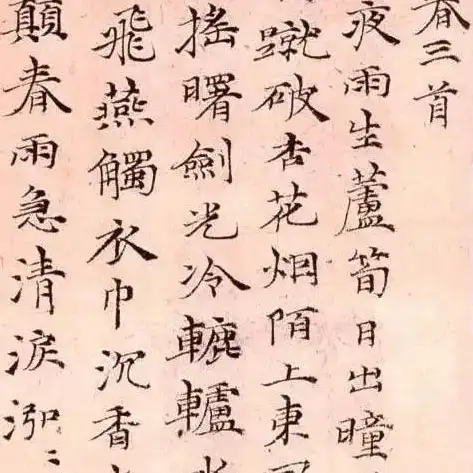 春三首
夜雨生蘆筍日出曈
蹴破杏花烟陌上東
搖曙劍光冷轆轤
飛燕觸衣巾沉香
顛春雨急清淚泓〻